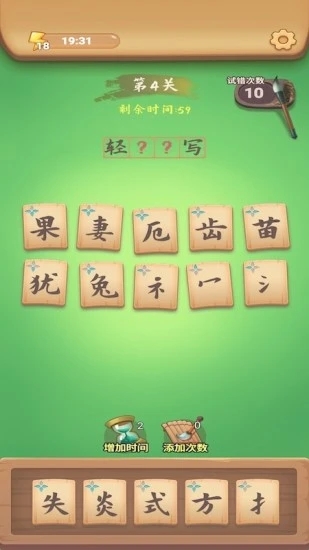 18
19:31
第4关
试错次数
10
剩余时间:59
轻??写
果 妻 厄 齿 苗
犹 兔 礻 冖 氵
2
0
增加时间
添加次数
失 炎 式 方 扌